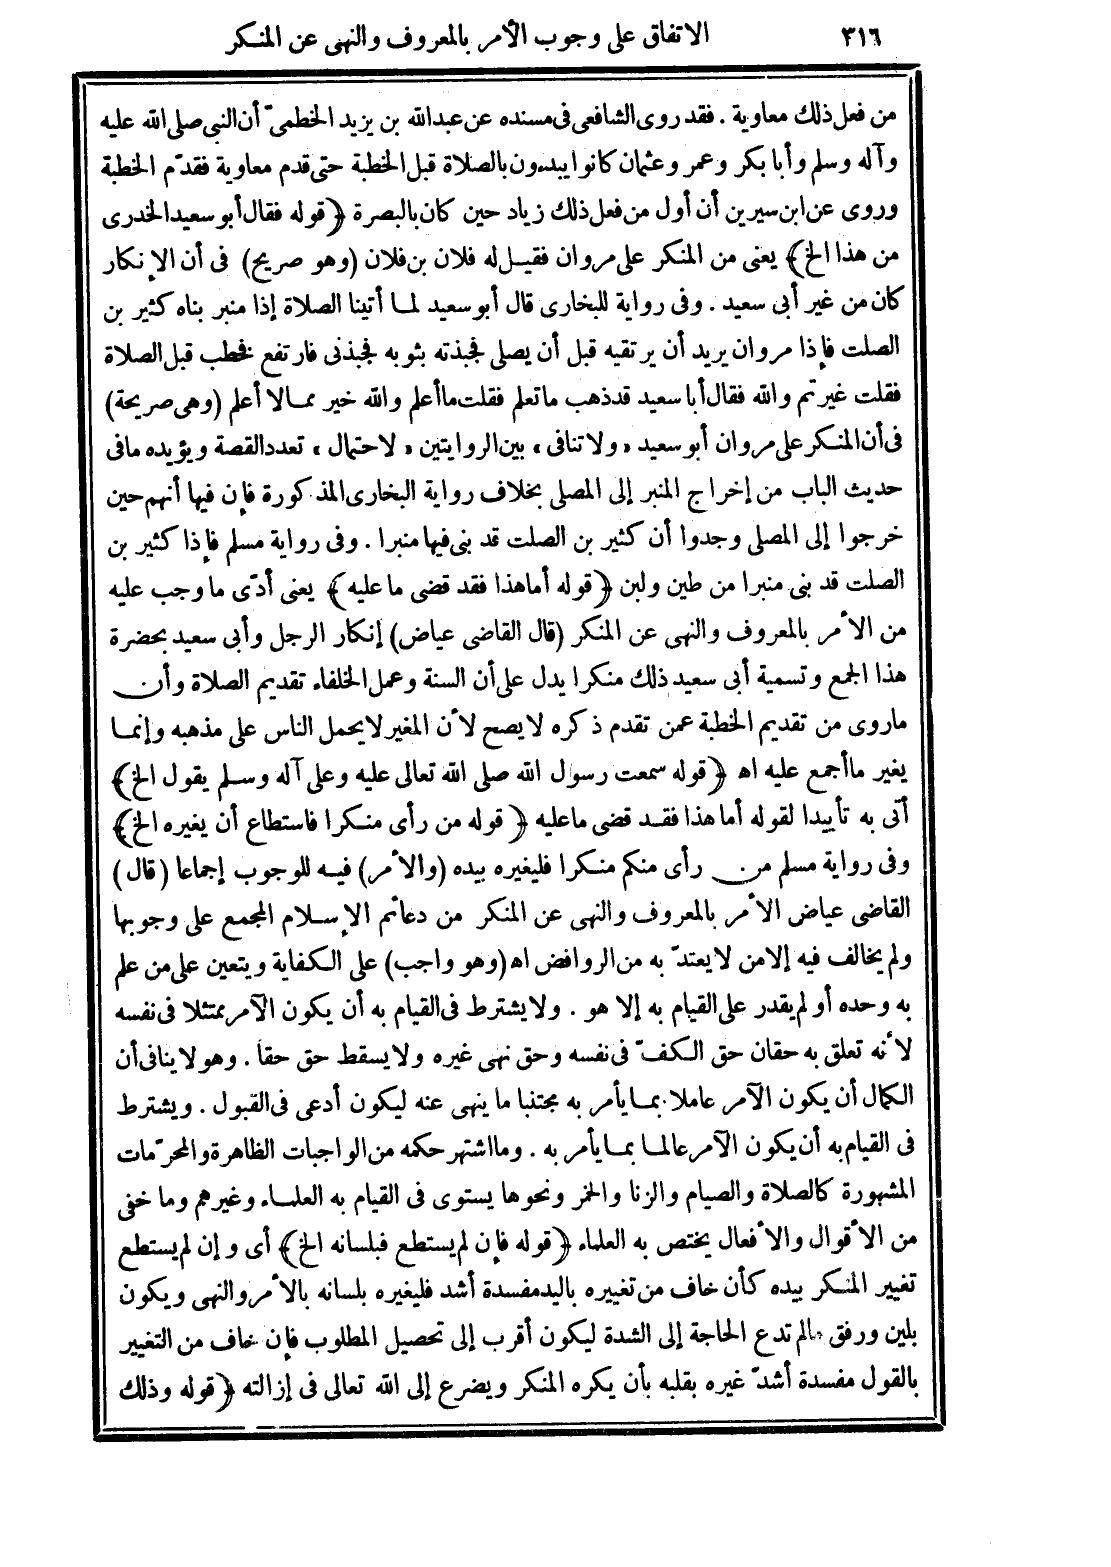 ٣١٦ الاتفاق على وجوب الأمر بالمعروف والنهى عن المنكر
من فعل ذلك معاوية . فقد روى الشافعى فى مسنده عن عبدالله بن يزيد الخطمىّ أن النبى صلى الله عليه
وآله وسلم وأبا بكر وعمر وعثمان كانوا يبدءون بالصلاة قبل الخطبة حتى قدم معاوية فقدّم الخطبة
وروى عن ابن سيرين أن أول من فعل ذلك زياد حين كان بالبصرة ﴿قوله فقال أبو سعيد الخدرى
من هذا الخ﴾ يعنى من المنكر على مروان فقيل له فلان بن فلان (وهو صريح) فى أن الإنكار
كان من غير أبى سعيد . وفى رواية للبخارى قال أبو سعيد لما أتينا الصلاة إذا منبر بناه كثير بن
الصلت فإذا مروان يريد أن يرتقيه قبل أن يصلى فجبذته بثوبه فجبذنى فارتفع فخطب قبل الصلاة
فقلت غيرتم والله فقال أبا سعيد قد ذهب ما تعلم فقلت ما أعلم والله خير مما لا أعلم (وهى صريحة)
فى أن المنكر على مروان أبو سعيد «ولا تنافى» بين الروايتين «لاحتمال» تعدد القصة ويؤيده ما فى
حديث الباب من إخراج المنبر إلى المصلى بخلاف رواية البخارى المذكورة فإن فيها أنهم حين
خرجوا إلى المصلى وجدوا أن كثير بن الصلت قد بنى فيها منبرا . وفى رواية مسلم فإذا كثير بن
الصلت قد بنى منبرا من طين ولبن ﴿قوله أما هذا فقد قضى ما عليه﴾ يعنى أدّى ما وجب عليه
من الأمر بالمعروف والنهى عن المنكر (قال القاضى عياض) إنكار الرجل وأبى سعيد بحضرة
هذا الجمع وتسمية أبى سعيد ذلك منكرا يدل على أن السنة وعمل الخلفاء تقديم الصلاة وأن
ما روى من تقديم الخطبة عمن تقدم ذكره لا يصح لأن المغير لا يحمل الناس على مذهبه وإنما
يغير ما أجمع عليه اه ﴿قوله سمعت رسول الله صلى الله تعالى عليه وعلى آله وسلم يقول الخ﴾
أتى به تأييدا لقوله أما هذا فقد قضى ما عليه ﴿قوله من رأى منكرا فاستطاع أن يغيره الخ﴾
وفى رواية مسلم من رأى منكم منكرا فليغيره بيده (والأمر) فيه للوجوب إجماعا (قال)
القاضى عياض الأمر بالمعروف والنهى عن المنكر من دعائم الإسلام المجمع على وجوبها
ولم يخالف فيه إلا من لا يعتدّ به من الروافض اه (وهو واجب) على الكفاية ويتعين على من علم
به وحده أو لم يقدر على القيام به إلا هو . ولا يشترط فى القيام به أن يكون الآمر ممتثلا فى نفسه
لأنه تعلق به حقان حق الكفّ فى نفسه وحق نهى غيره ولا يسقط حق حقا . وهو لا ينافى أن
الكمال أن يكون الآمر عاملا بما يأمر به مجتنبا ما ينهى عنه ليكون أدعى فى القبول . ويشترط
فى القيام به أن يكون الآمر عالما بما يأمر به . وما اشتهر حكمه من الواجبات الظاهرة والمحرّمات
المشهورة كالصلاة والصيام والزنا والخمر ونحوها يستوى فى القيام به العلماء وغيرهم وما خفى
من الأقوال والأفعال يختص به العلماء ﴿قوله فإن لم يستطع فبلسانه الخ﴾ أى وإن لم يستطع
تغيير المنكر بيده كأن خاف من تغييره باليد مفسدة أشد فليغيره بلسانه بالأمر والنهى ويكون
بلين ورفق مالم تدع الحاجة إلى الشدة ليكون أقرب إلى تحصيل المطلوب فإن خاف من التغيير
بالقول مفسدة أشدّ غيره بقلبه بأن يكره المنكر ويضرع إلى الله تعالى فى إزالته ﴿قوله وذلك